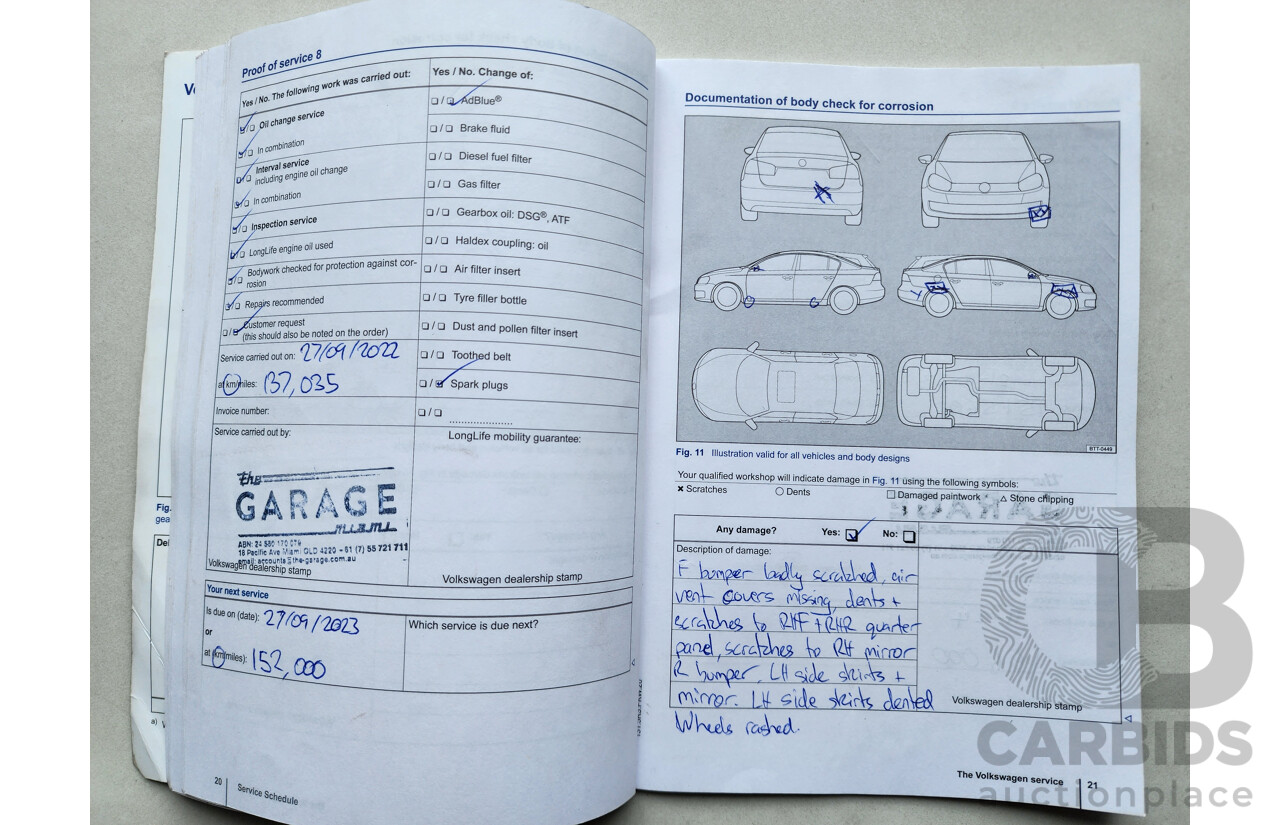 Proof of service 8
Yes / No. The following work was carried out:
Oil change service
In combination
Interval service
including engine oil change
In combination
Inspection service
LongLife engine oil used
Bodywork checked for protection against cor-
rosion
Repairs recommended
Customer request
(this should also be noted on the order)
Service carried out on: 27/09/2022
at km/miles: 137,035
Invoice number:
Service carried out by:
the
GARAGE
MIAMI
18 Pacific Ave Miami QLD 4220 +61 (7) 55 721 711
email: accounts@the-garage.com.au
Volkswagen dealership stamp
Yes / No. Change of:
AdBlue®
Brake fluid
Diesel fuel filter
Gas filter
Gearbox oil: DSG®, ATF
Haldex coupling: oil
Air filter insert
Tyre filler bottle
Dust and pollen filter insert
Toothed belt
Spark plugs
LongLife mobility guarantee:
Volkswagen dealership stamp
Your next service
Is due on (date): 27/09/2023
or
at (km/miles): 152,000
Which service is due next?
20
Service Schedule
Fig.
gea
Del
a)
Documentation of body check for corrosion
BTT-0449
Fig. 11 Illustration valid for all vehicles and body designs
Your qualified workshop will indicate damage in Fig. 11 using the following symbols:
Scratches Dents Damaged paintwork Stone chipping
Any damage? Yes: No:
Description of damage:
F bumper badly scratched, air
vent covers missing, dents +
scratches to RHF + RHR quarter
panel, scratches to RH mirror
R bumper, LH side skirts +
mirror. LH side skirts dented
Wheels rashed.
Volkswagen dealership stamp
The Volkswagen service
21
CB
CARBIDS
auctionplace